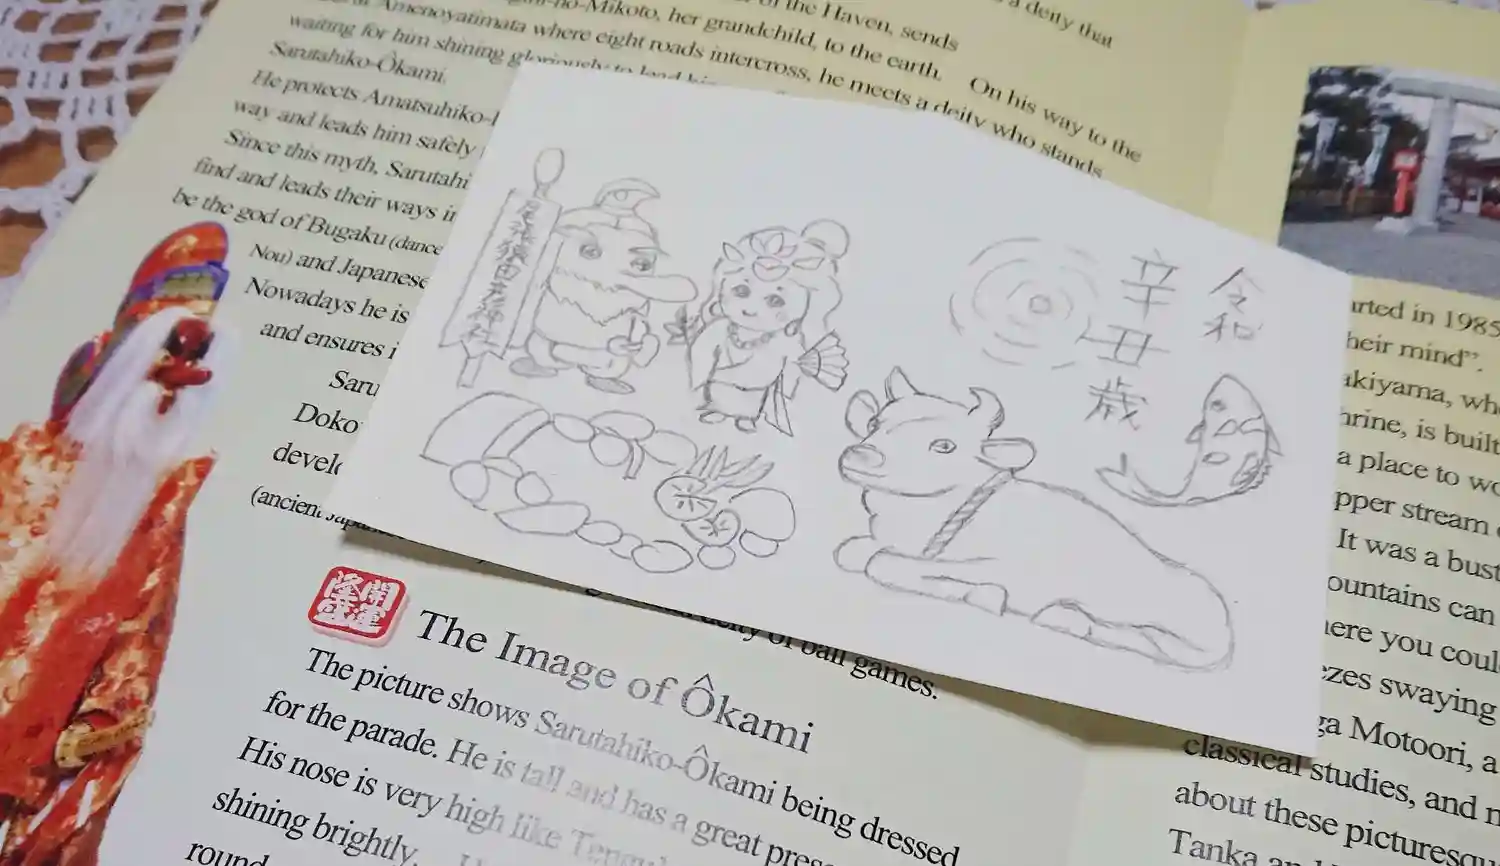 of the Haven, sends
a deity that
-no-Mikoto, her grandchild, to the earth. On his way to the
Amenoyatimata where eight roads intercross, he meets a deity who stands
waiting for him shining gloriously to lead
Sarutahiko-Ôkami.
He protects Amatsuhiko-
way and leads him safely
Since this myth, Sarutahi
find and leads their ways in
be the god of Bugaku (dance
Nou) and Japanese
Nowadays he is
and ensures i
Saru
Doko
devel
(ancient
deity of ball games.
開運
隆盛
The Image of Ôkami
The picture shows Sarutahiko-Ôkami being dressed
for the parade. He is tall and has a great pres
His nose is very high like Tengu
shining brightly.
round
令和
辛丑歳
arted in 1985
heir mind”.
akiyama, wh
hrine, is built
a place to wo
pper stream
It was a bust
ountains can
here you coul
ezes swaying
ga Motoori, a
classical studies, and
about these picturesqu
Tanka